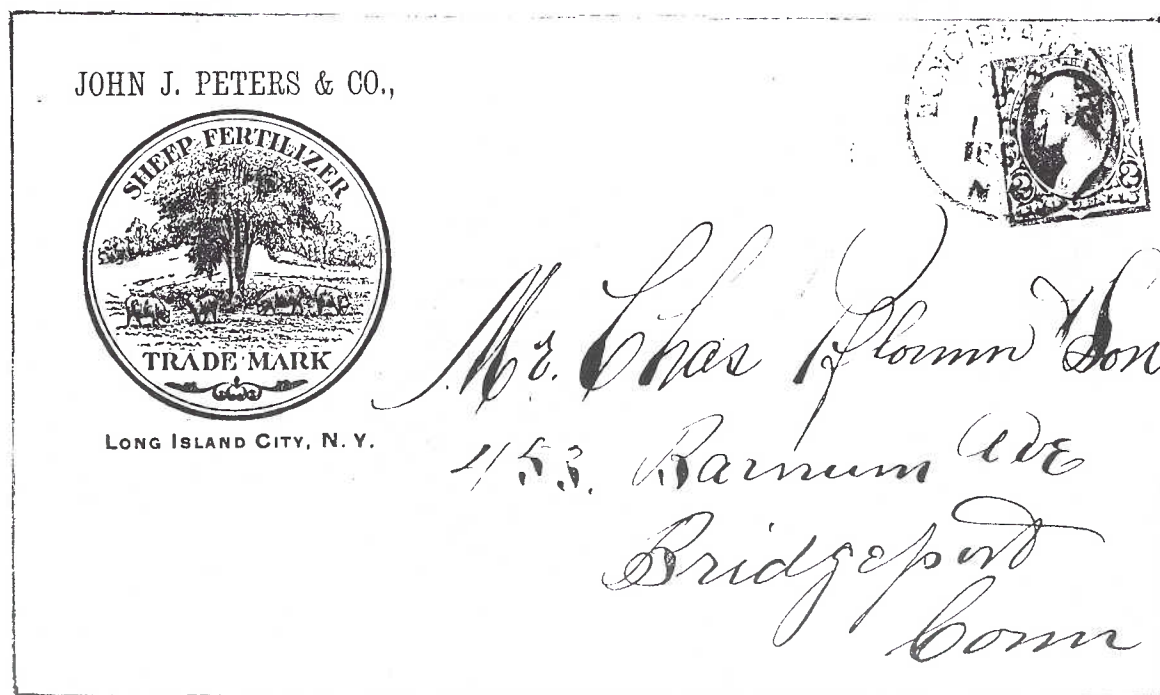 JOHN J. PETERS & CO.,
SHEEP FERTILIZER
TRADE MARK
LONG ISLAND CITY, N. Y.
Mr. Chas Son
453. Barnum Ave
Bridgeport
Conn
2 2